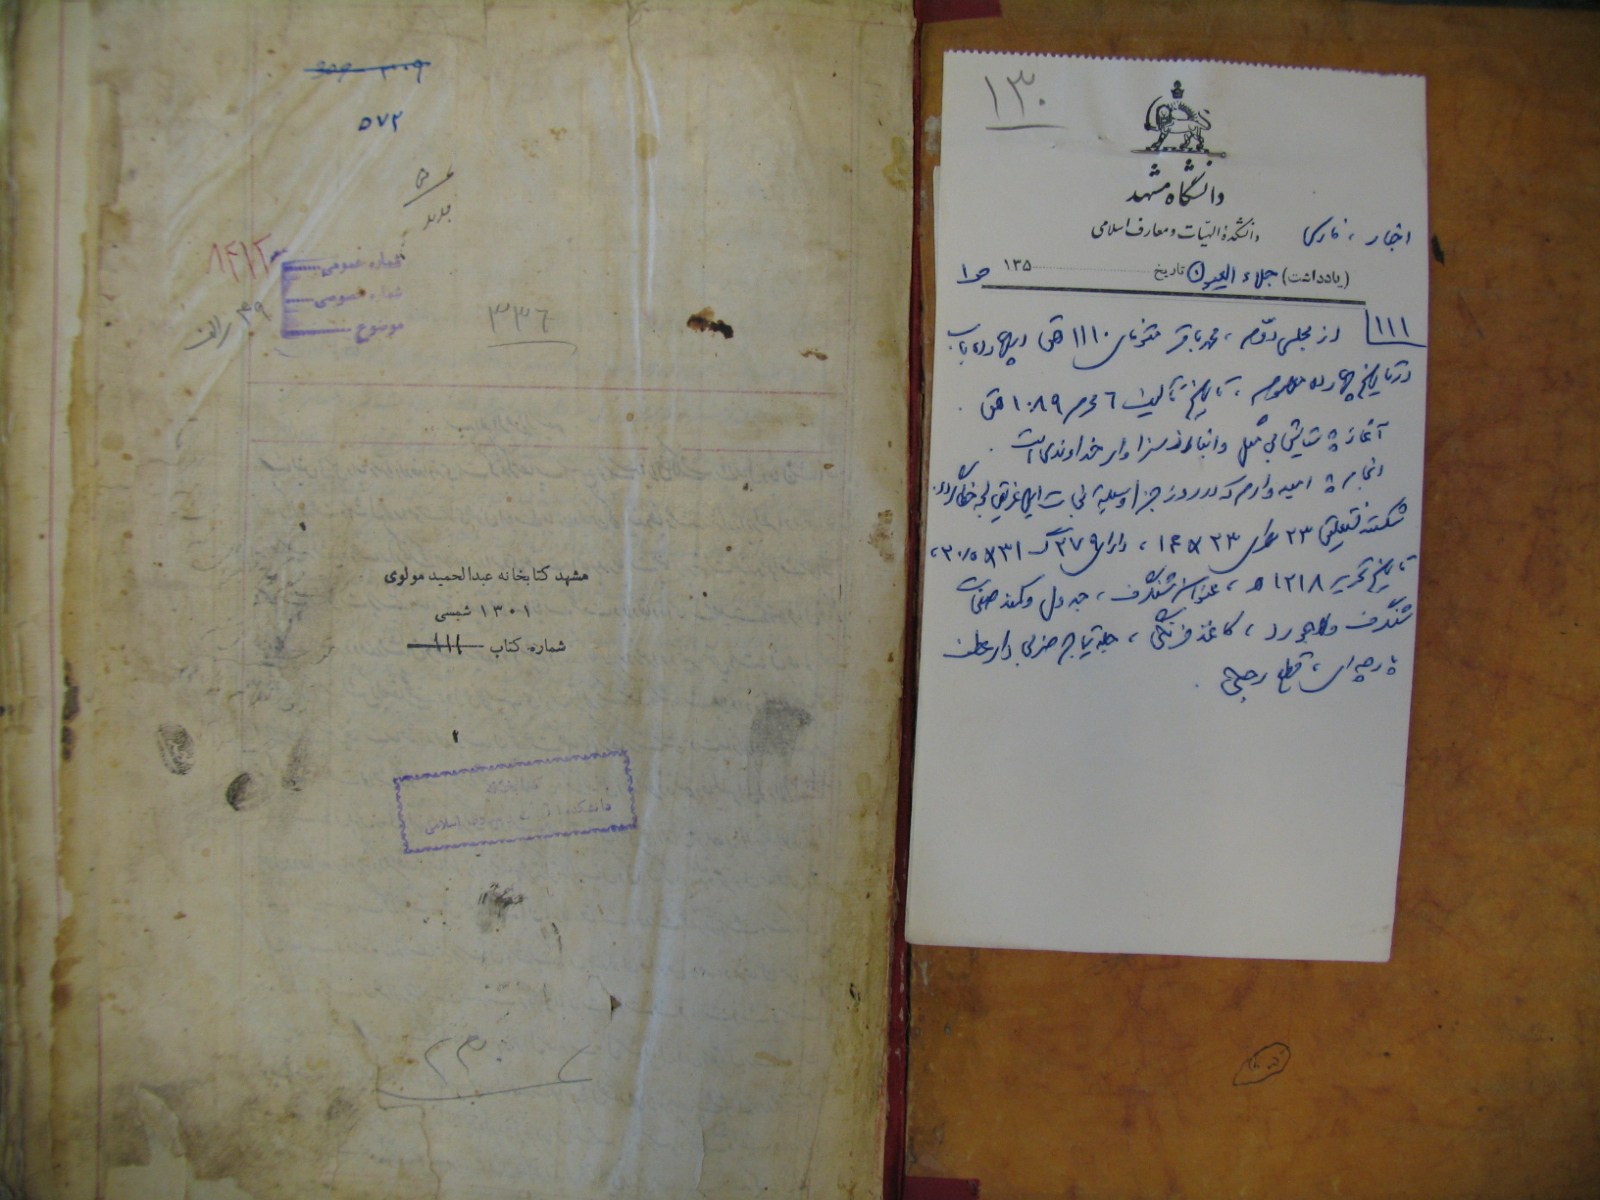 ۱۳۰
دانشگاه مشهد
دانشکدهٔ الهیات و معارف اسلامی
اخبار، فارسی
(یادداشت) جلاء العیون تاریخ ۱۳۵ ص ۱
۱۱۱
از مجلسی دوم، محمد باقر متوفای ۱۱۱۰ هق در چهارده باب
در تاریخ چهارده معصوم، تاریخ تألیف ۶ محرم ۱۰۸۹ هق.
آغاز: ستایش بی مثل و انباز سزاوار خداوندی است
انجام: امیدوارم که در روز جزا وسیله نجات این غریق لجه خطا گردد.
شکسته نستعلیق ۲۳ س ۲۳×۱۴، دارای ۲۷۹ گ ۳۱×۲۰/۵،
تاریخ تحریر ۱۲۱۸ هـ، عنوان شنگرف، جدول و کمند صفحات
شنگرف و لاجورد، کاغذ فرنگی، جلد تیماج ضربی دار عطف
پارچه ای، قطع رحلی.
۵۷۲
ض
جدید
شماره عمومی ۸۴۱۲
شماره خصوصی
موضوع
۳۹ الف
۳۳۶
مشهد کتابخانه عبدالحمید مولوی
۱۳۰۱ شمسی
شماره کتاب ۱۱۱
کتابخانه
دانشکده الهیات و معارف اسلامی